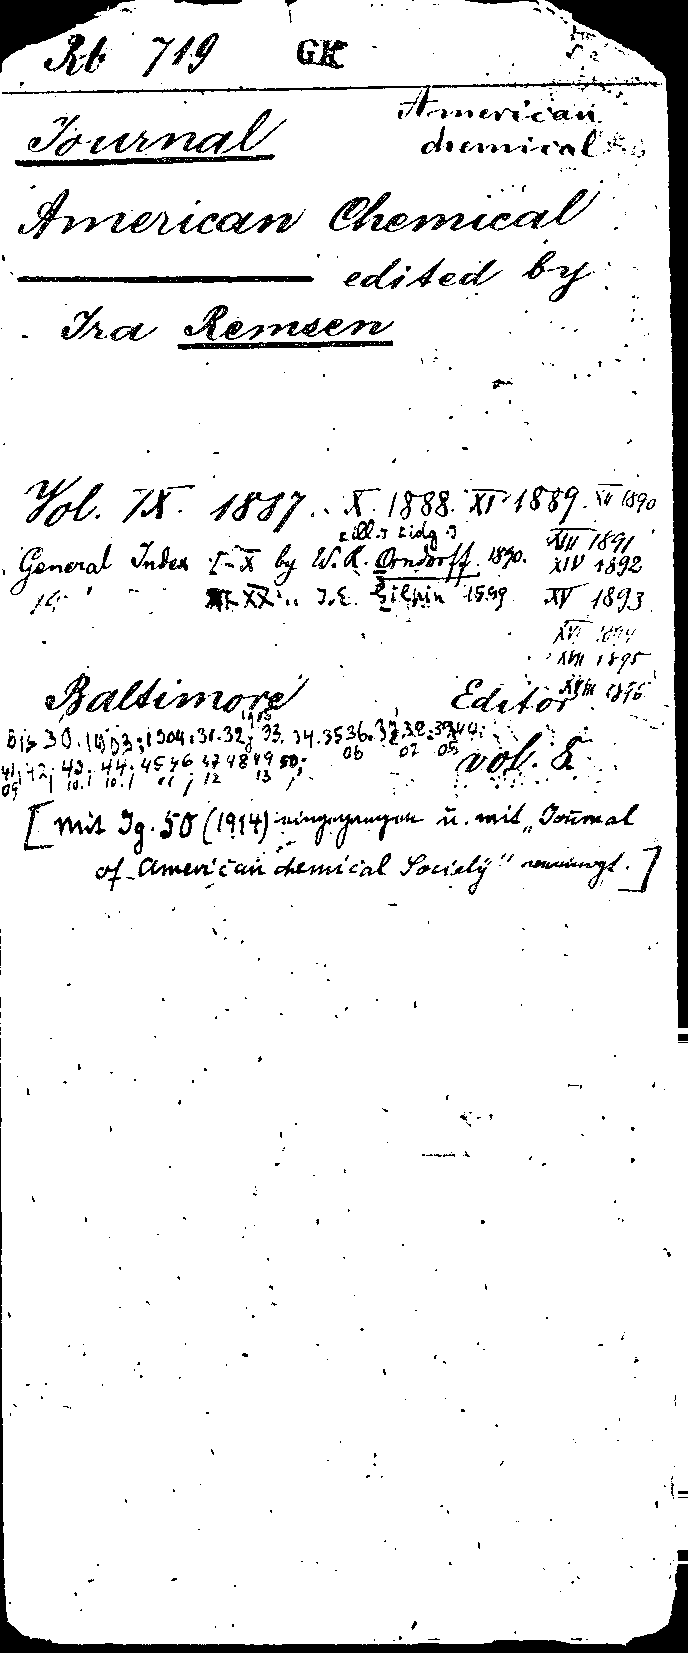 Rb 719 GK
American
chemical
Journal
American Chemical
edited by
Ira Remsen
Vol. IX. 1887. X. 1888. XI 1889. XII 1890
[ill.] [idg.]
XIII 1891
General Index I-X by W. R. Orndorff. 1890. XIV 1892
XI-XX .. J. E. Gilpin 1899 XV 1893
XVI 1894
XVII 1895
XVIII 1896
Baltimore Editor
1905
Bis 30. 1903; 1904: 31. 32; 33. 34. 35 36. 37. 38. 39 40.
06 07 08
vol. 8.
41, 42; 43, 44; 45 46 47 48 49 50;
09 10. 11 12 13
[Mit Jg. 50 (1914) eingegangen u. mit „Journal
of American chemical Society" vereinigt.]